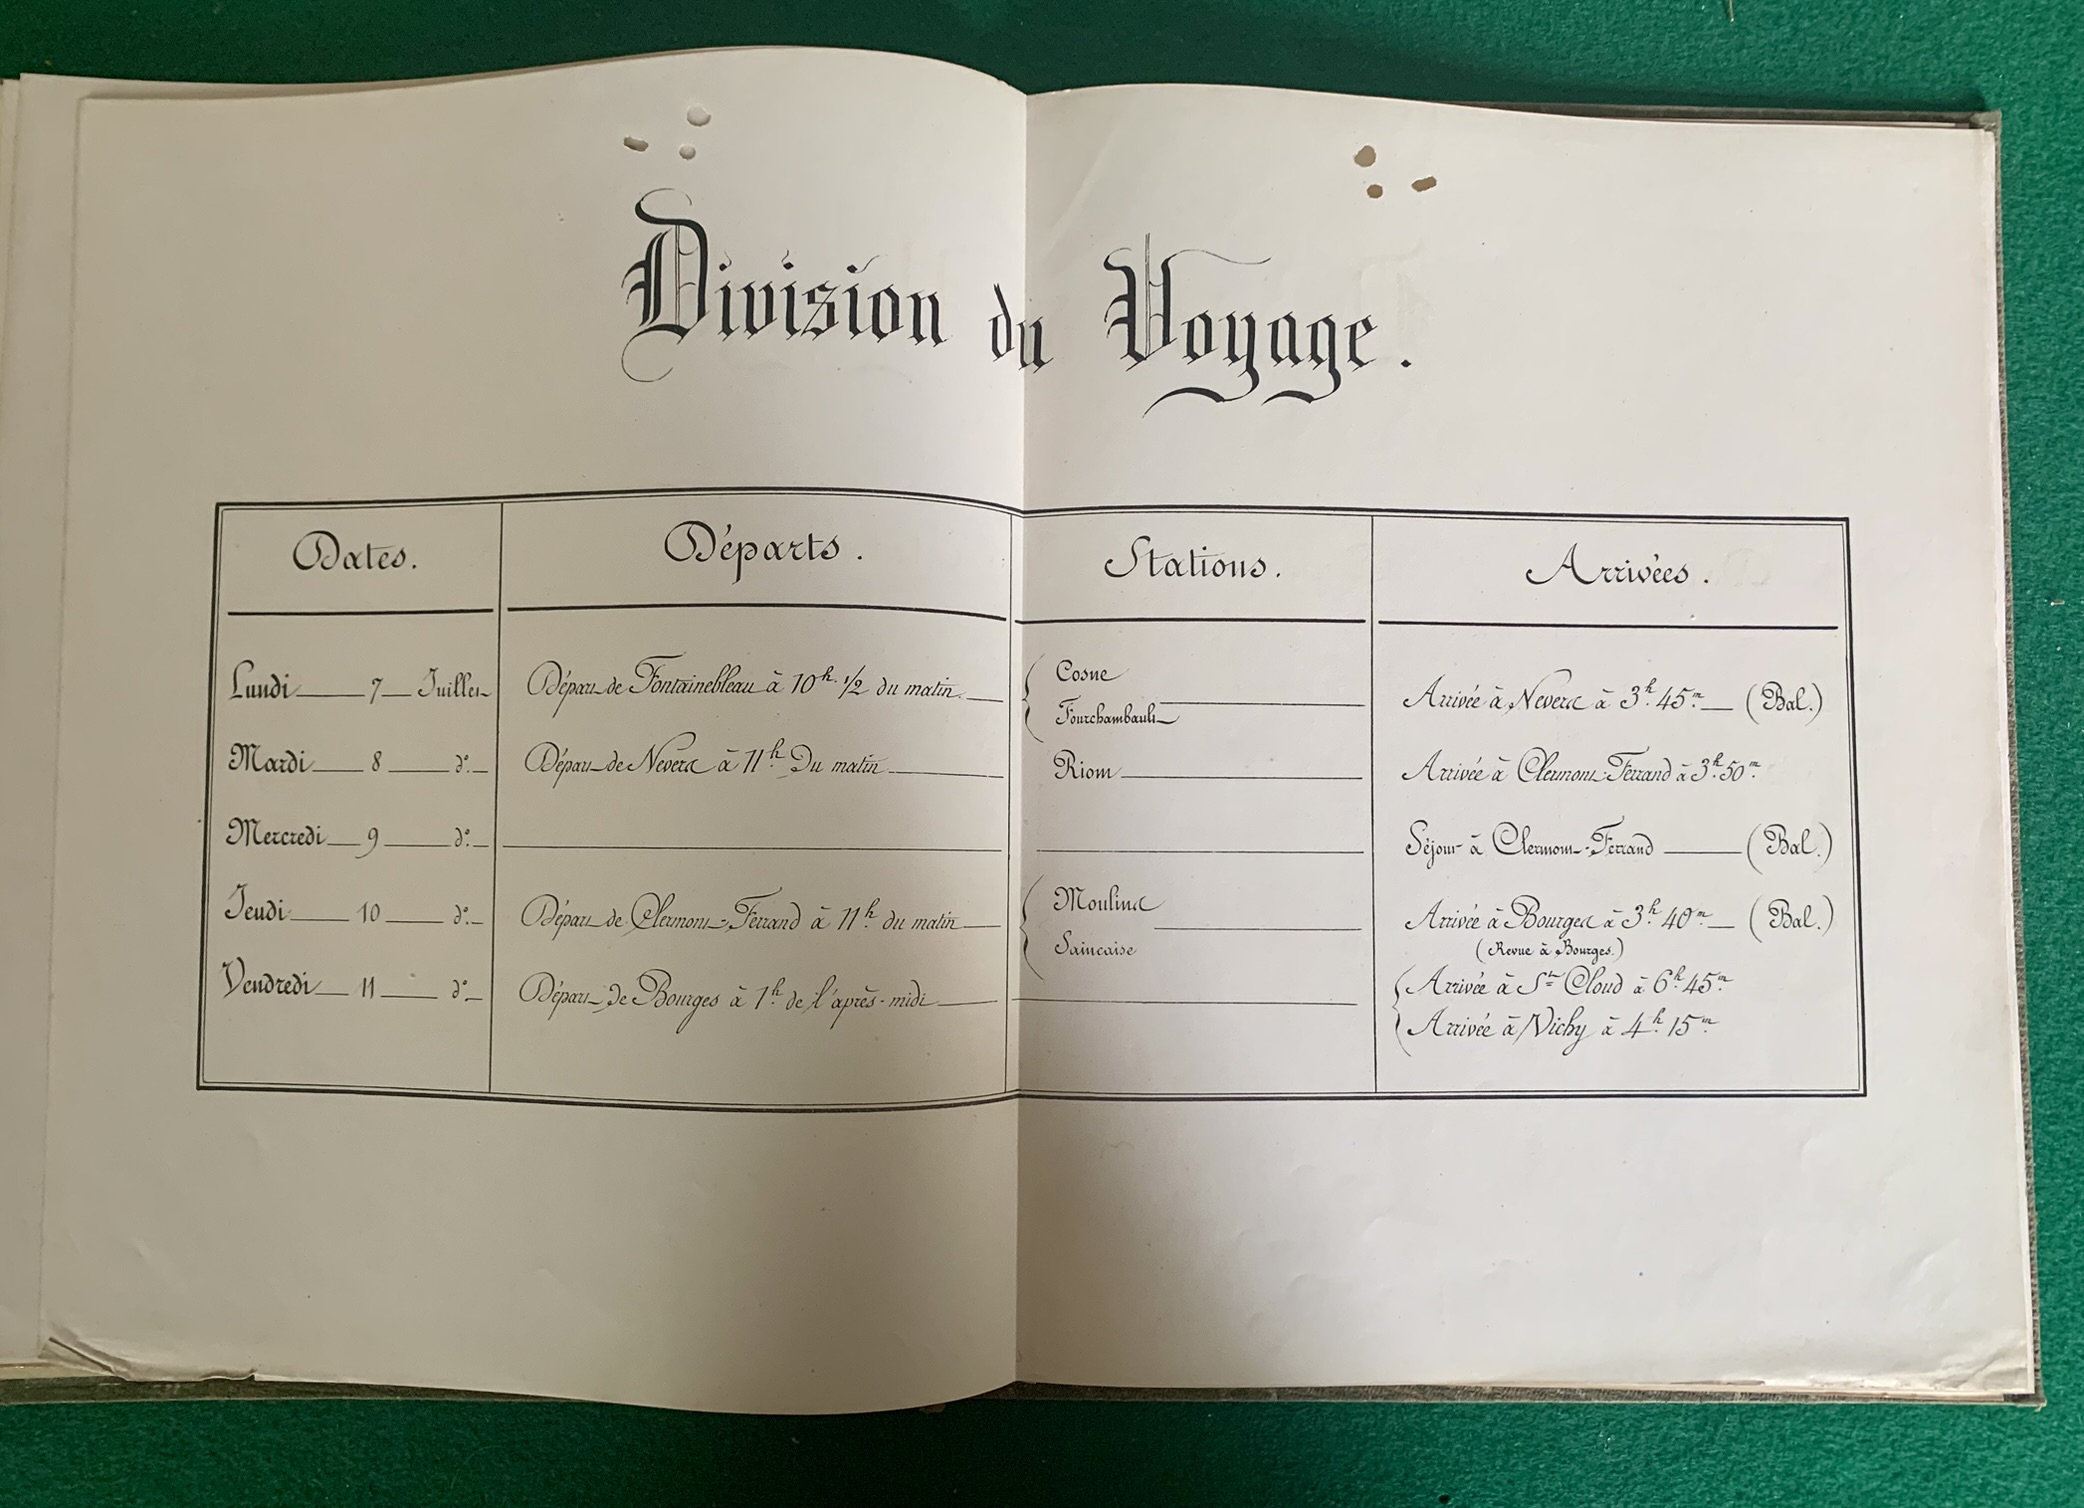 Division du Voyage.
Dates. Départs. Stations. Arrivées.
Lundi 7 Juillet Départ de Fontainebleau à 10h. 1/2 du matin { Cosne
Fourchambault Arrivée à Nevers à 3h. 45m. (Bal.)
Mardi 8 do. Départ de Nevers à 11h. Du matin Riom Arrivée à Clermont-Ferrand à 3h. 50m.
Mercredi 9 do. Séjour à Clermont-Ferrand (Bal.)
Jeudi 10 do. Départ de Clermont-Ferrand à 11h. du matin { Moulins
Saincaise Arrivée à Bourges à 3h. 40m. (Bal.)
(Revue à Bourges.)
Vendredi 11 do. Départ de Bourges à 1h. de l'après-midi { Arrivée à St. Cloud à 6h. 45m.
Arrivée à Vichy à 4h. 15m.